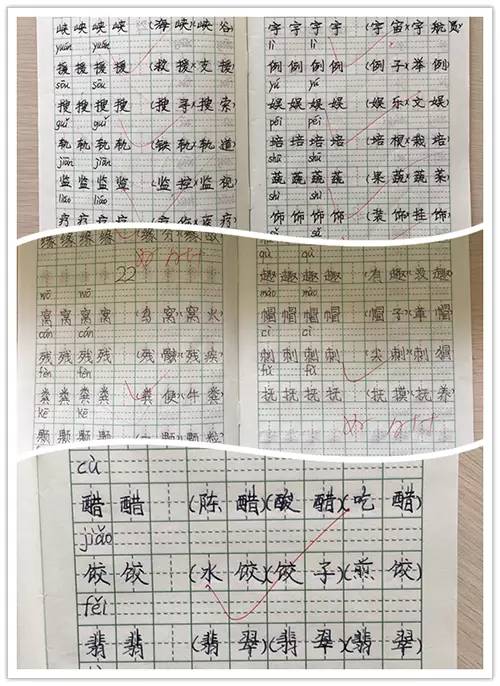 峡 峡 峡 峡 (海 峡)(峡 谷)
yuán yuán
援 援 援 援 (救 援)(支 援)
sōu sōu
搜 搜 搜 搜 (搜 寻)(搜 索)
guǐ guǐ
轨 轨 轨 轨 (铁 轨)(轨 道)
jiān jiān
监 监 监 监 (监 控)(监 视)
liáo liáo
疗 疗 疗 疗
宇 宇 宇 宇 (宇 宙)(宇 航 员)
lì lì
例 例 例 例 (例 子)(举 例)
yú yú
娱 娱 娱 娱 (娱 乐)(文 娱)
péi péi
培 培 培 培 (培 根)(栽 培)
shū shū
蔬 蔬 蔬 蔬 (果 蔬)(蔬 菜)
shì shì
饰 饰 饰 饰 (装 饰)(挂 饰)
sū sū
缘 缘 缘 缘
22
wō wō
窝 窝 窝 窝
cán cán
残 残 残 残 (残 酷)(残 疾)
fèn fèn
粪 粪 粪 粪 (粪 便)(牛 粪)
kē kē
颗 颗 颗 颗
qù qù
趣 趣 趣 趣 (有 趣)(没 趣)
mào mào
帽 帽 帽 帽 (帽 子)(草 帽)
cì cì
刺 刺 刺 刺 (尖 刺)(刺 猬)
fǔ fǔ
抚 抚 抚 抚 (抚 摸)(抚 养)
cù
醋 醋 (陈 醋)(酸 醋)(吃 醋)
jiǎo
饺 饺 (水 饺)(饺 子)(煎 饺)
fěi
翡 翡 (翡 翠)(翡 翠)(翡 翠)